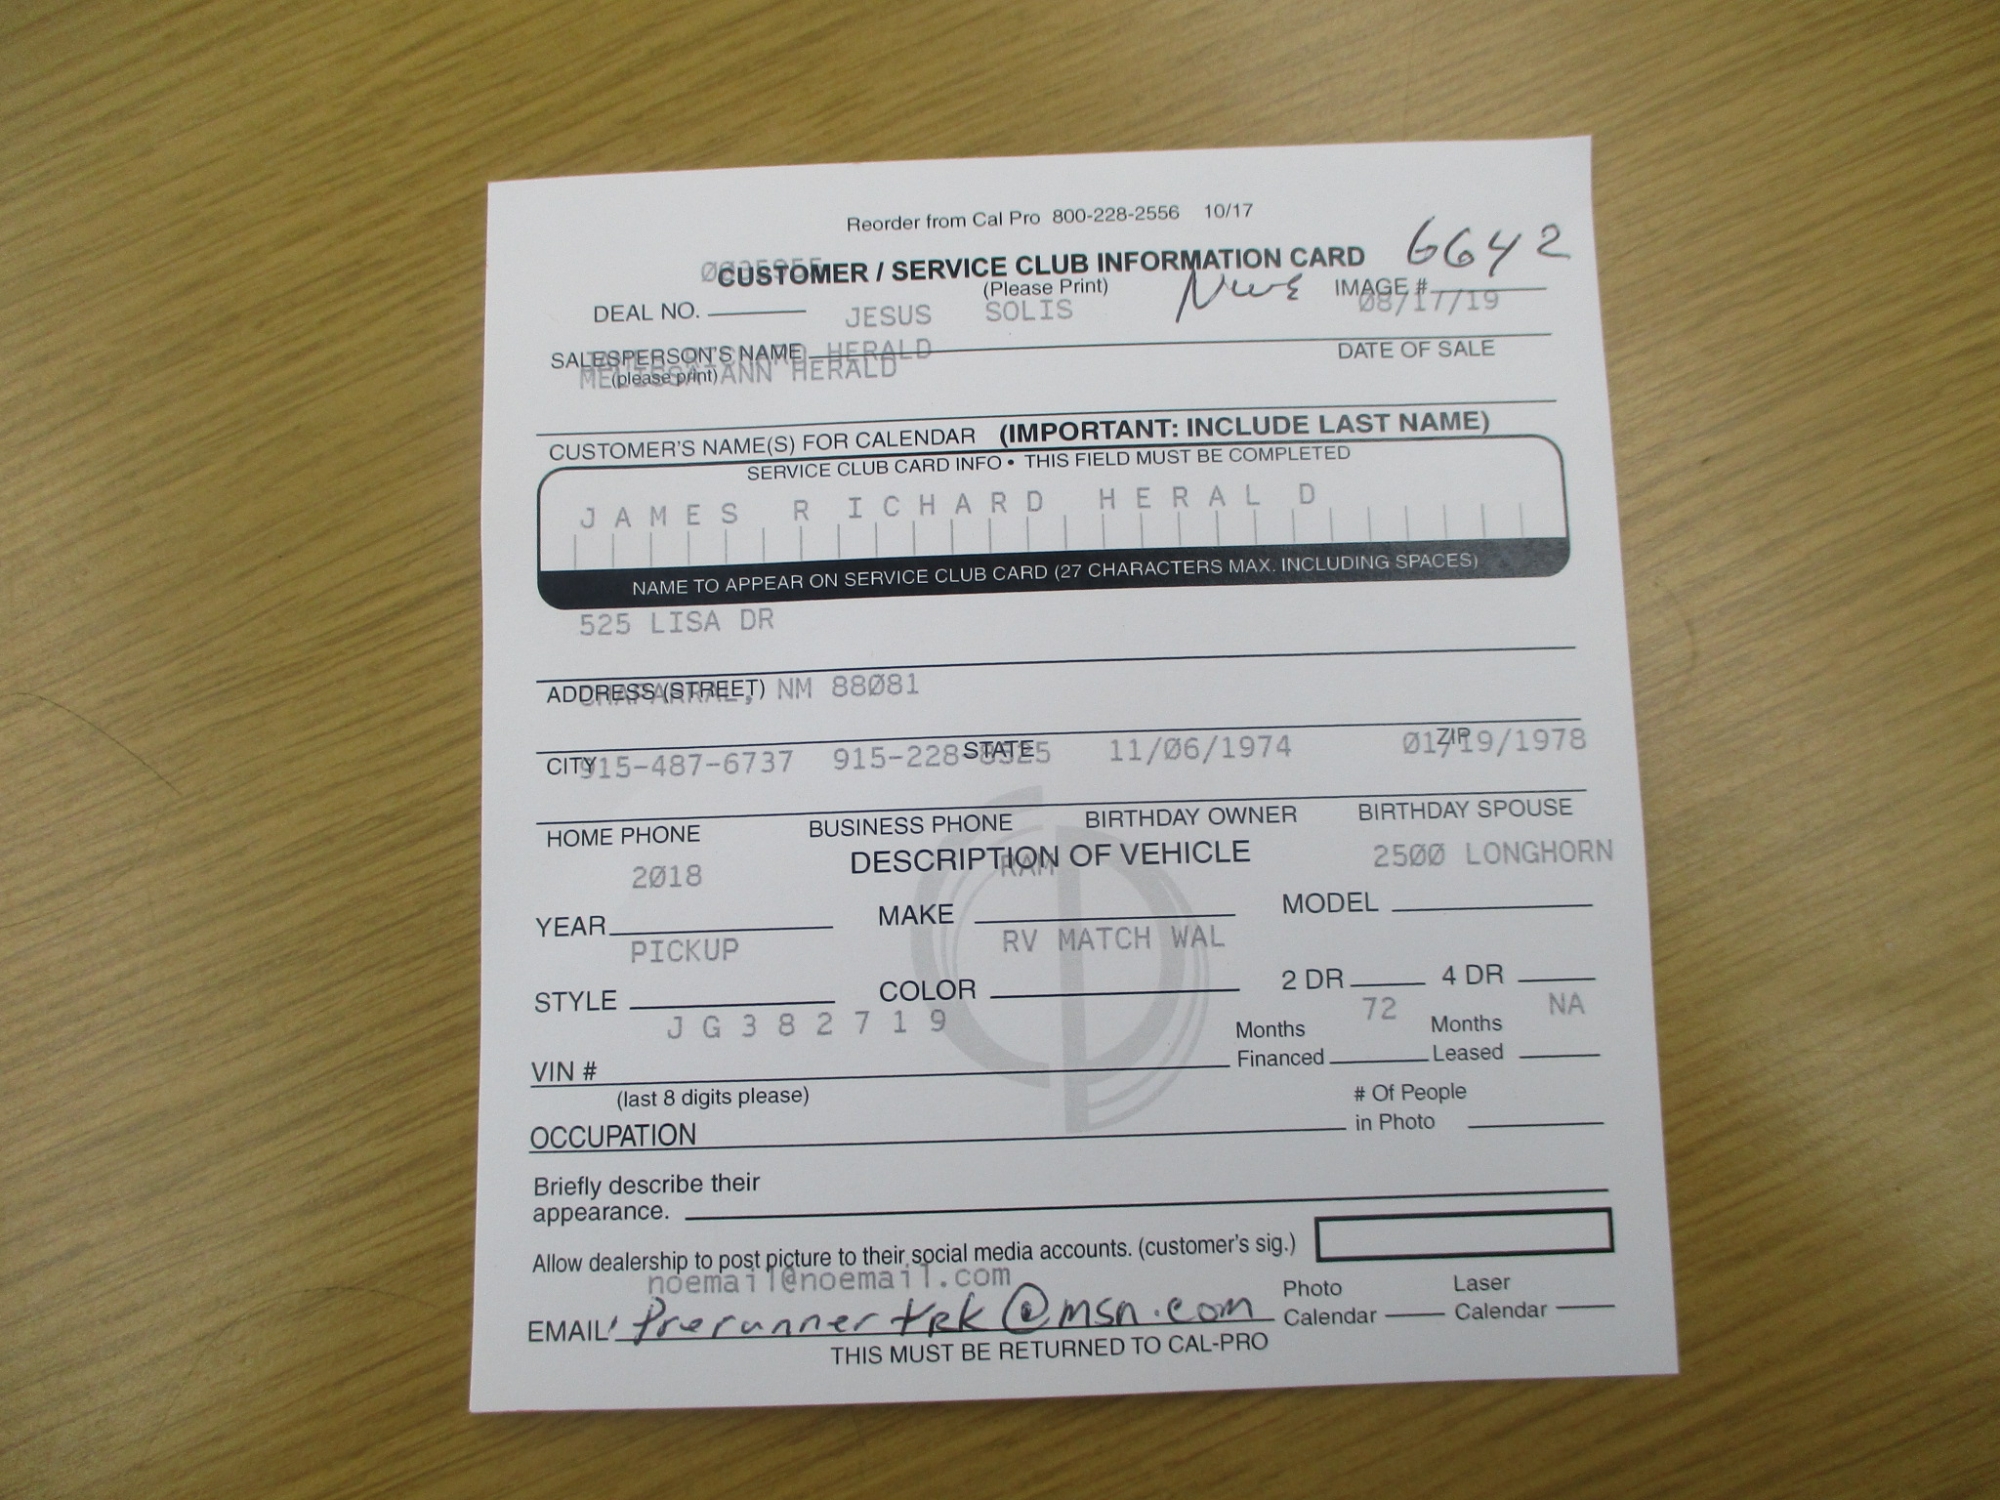 Reorder from Cal Pro 800-228-2556 10/17
CUSTOMER / SERVICE CLUB INFORMATION CARD 6642
(Please Print) IMAGE #
DEAL NO. JESUS SOLIS 08/17/19
SALESPERSON'S NAME HERALD DATE OF SALE
(please print) ANN HERALD
CUSTOMER'S NAME(S) FOR CALENDAR (IMPORTANT: INCLUDE LAST NAME)
SERVICE CLUB CARD INFO • THIS FIELD MUST BE COMPLETED
JAMES RICHARD HERALD
NAME TO APPEAR ON SERVICE CLUB CARD (27 CHARACTERS MAX. INCLUDING SPACES)
525 LISA DR
ADDRESS (STREET) NM 88081
CITY STATE ZIP
915-487-6737 11/06/1974 01/19/1978
HOME PHONE BUSINESS PHONE BIRTHDAY OWNER BIRTHDAY SPOUSE
2018 DESCRIPTION OF VEHICLE RAM 2500 LONGHORN
YEAR MAKE MODEL
PICKUP RV MATCH WAL
STYLE COLOR 2 DR 4 DR
JG382719 72 NA
VIN # Months Financed Months Leased
(last 8 digits please)
OCCUPATION # Of People in Photo
Briefly describe their
appearance.
Allow dealership to post picture to their social media accounts. (customer's sig.)
noemail@noemail.com
EMAIL prerunnertrk@msn.com Photo Calendar Laser Calendar
THIS MUST BE RETURNED TO CAL-PRO